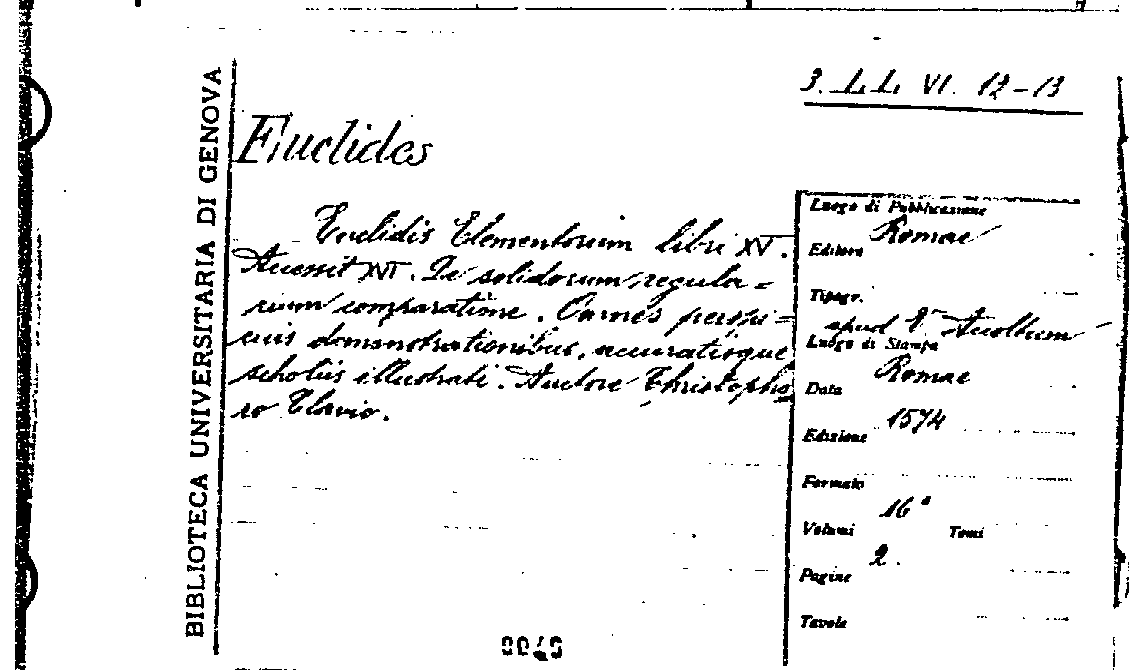 BIBLIOTECA UNIVERSITARIA DI GENOVA
3. LL. VI. 12-13
Euclides
Euclidis Elementorum libri XV.
Accessit XVI. De solidorum regula=
rium comparatione. Omnes perspi=
cuis demonstrationibus, accuratisque
scholiis illustrati. Auctore Christopho
ro Clavio.
Luogo di Pubblicazione
Romae
Editore
Tipogr.
apud V. Accoltum
Luogo di Stampa
Romae
Data
1574
Edizione
Formato
16°
Volumi Tomi
2.
Pagine
Tavole